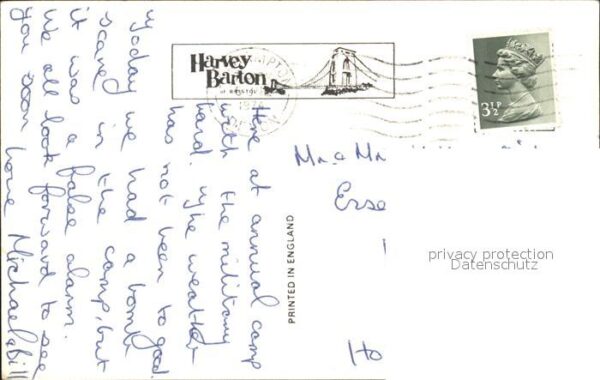 Harvey
Barton
of BRISTOL
1974
3½P
Here at annual camp
with the military
band. The weather
has not been to good
Today we had a bomb
scare in the camp, but
it was a false alarm.
We all look forward to see
you soon love Michael & Bill
Mr & Mr
Esse
Ito
PRINTED IN ENGLAND
privacy protection
Datenschutz